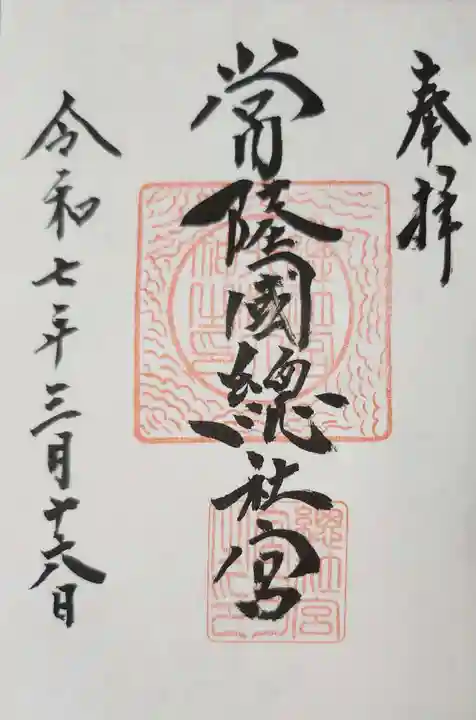 奉拝
常陸國總社宮
令和七年三月十六日